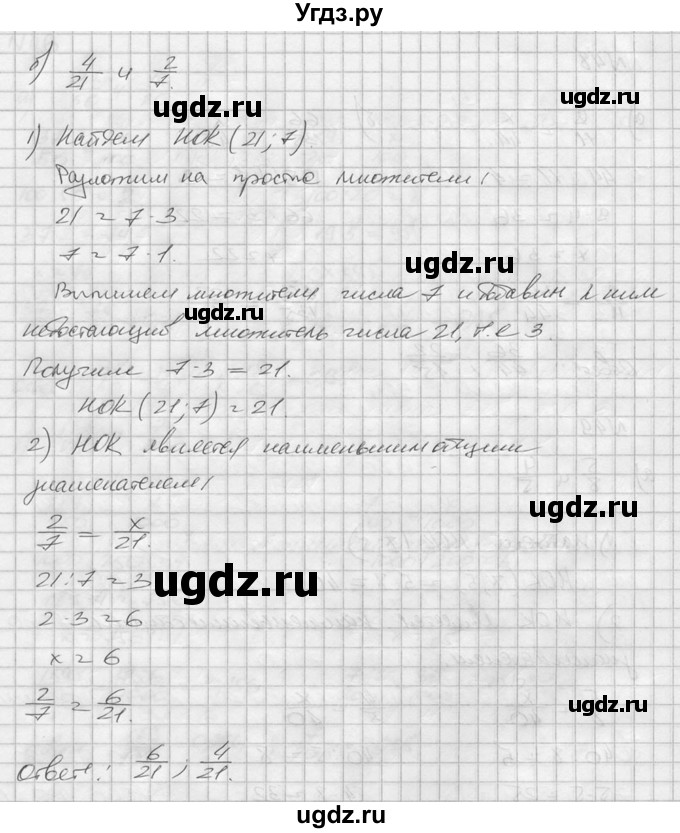 Угдз.ру
б) 4/21 и 2/7.
ugdz.ru
1) Найдем НОК (21; 7).
ugdz.ru
Разложим на просто множители:
21 = 7 · 3
7 = 7 · 1.
ugdz.ru
Выпишем множители числа 7 и добавим к ним
ugdz.ru
недостающий множитель числа 21, т.е 3.
Получим 7 · 3 = 21.
НОК (21; 7) = 21.
ugdz.ru
2) НОК является наименьшим общим
знаменателем:
ugdz.ru
2/7 = x/21.
21 : 7 = 3
ugdz.ru
2 · 3 = 6
x = 6
2/7 = 6/21.
ugdz.ru
ugdz.ru
Ответ: 6/21 ; 4/21.
ugdz.ru
ugdz.ru